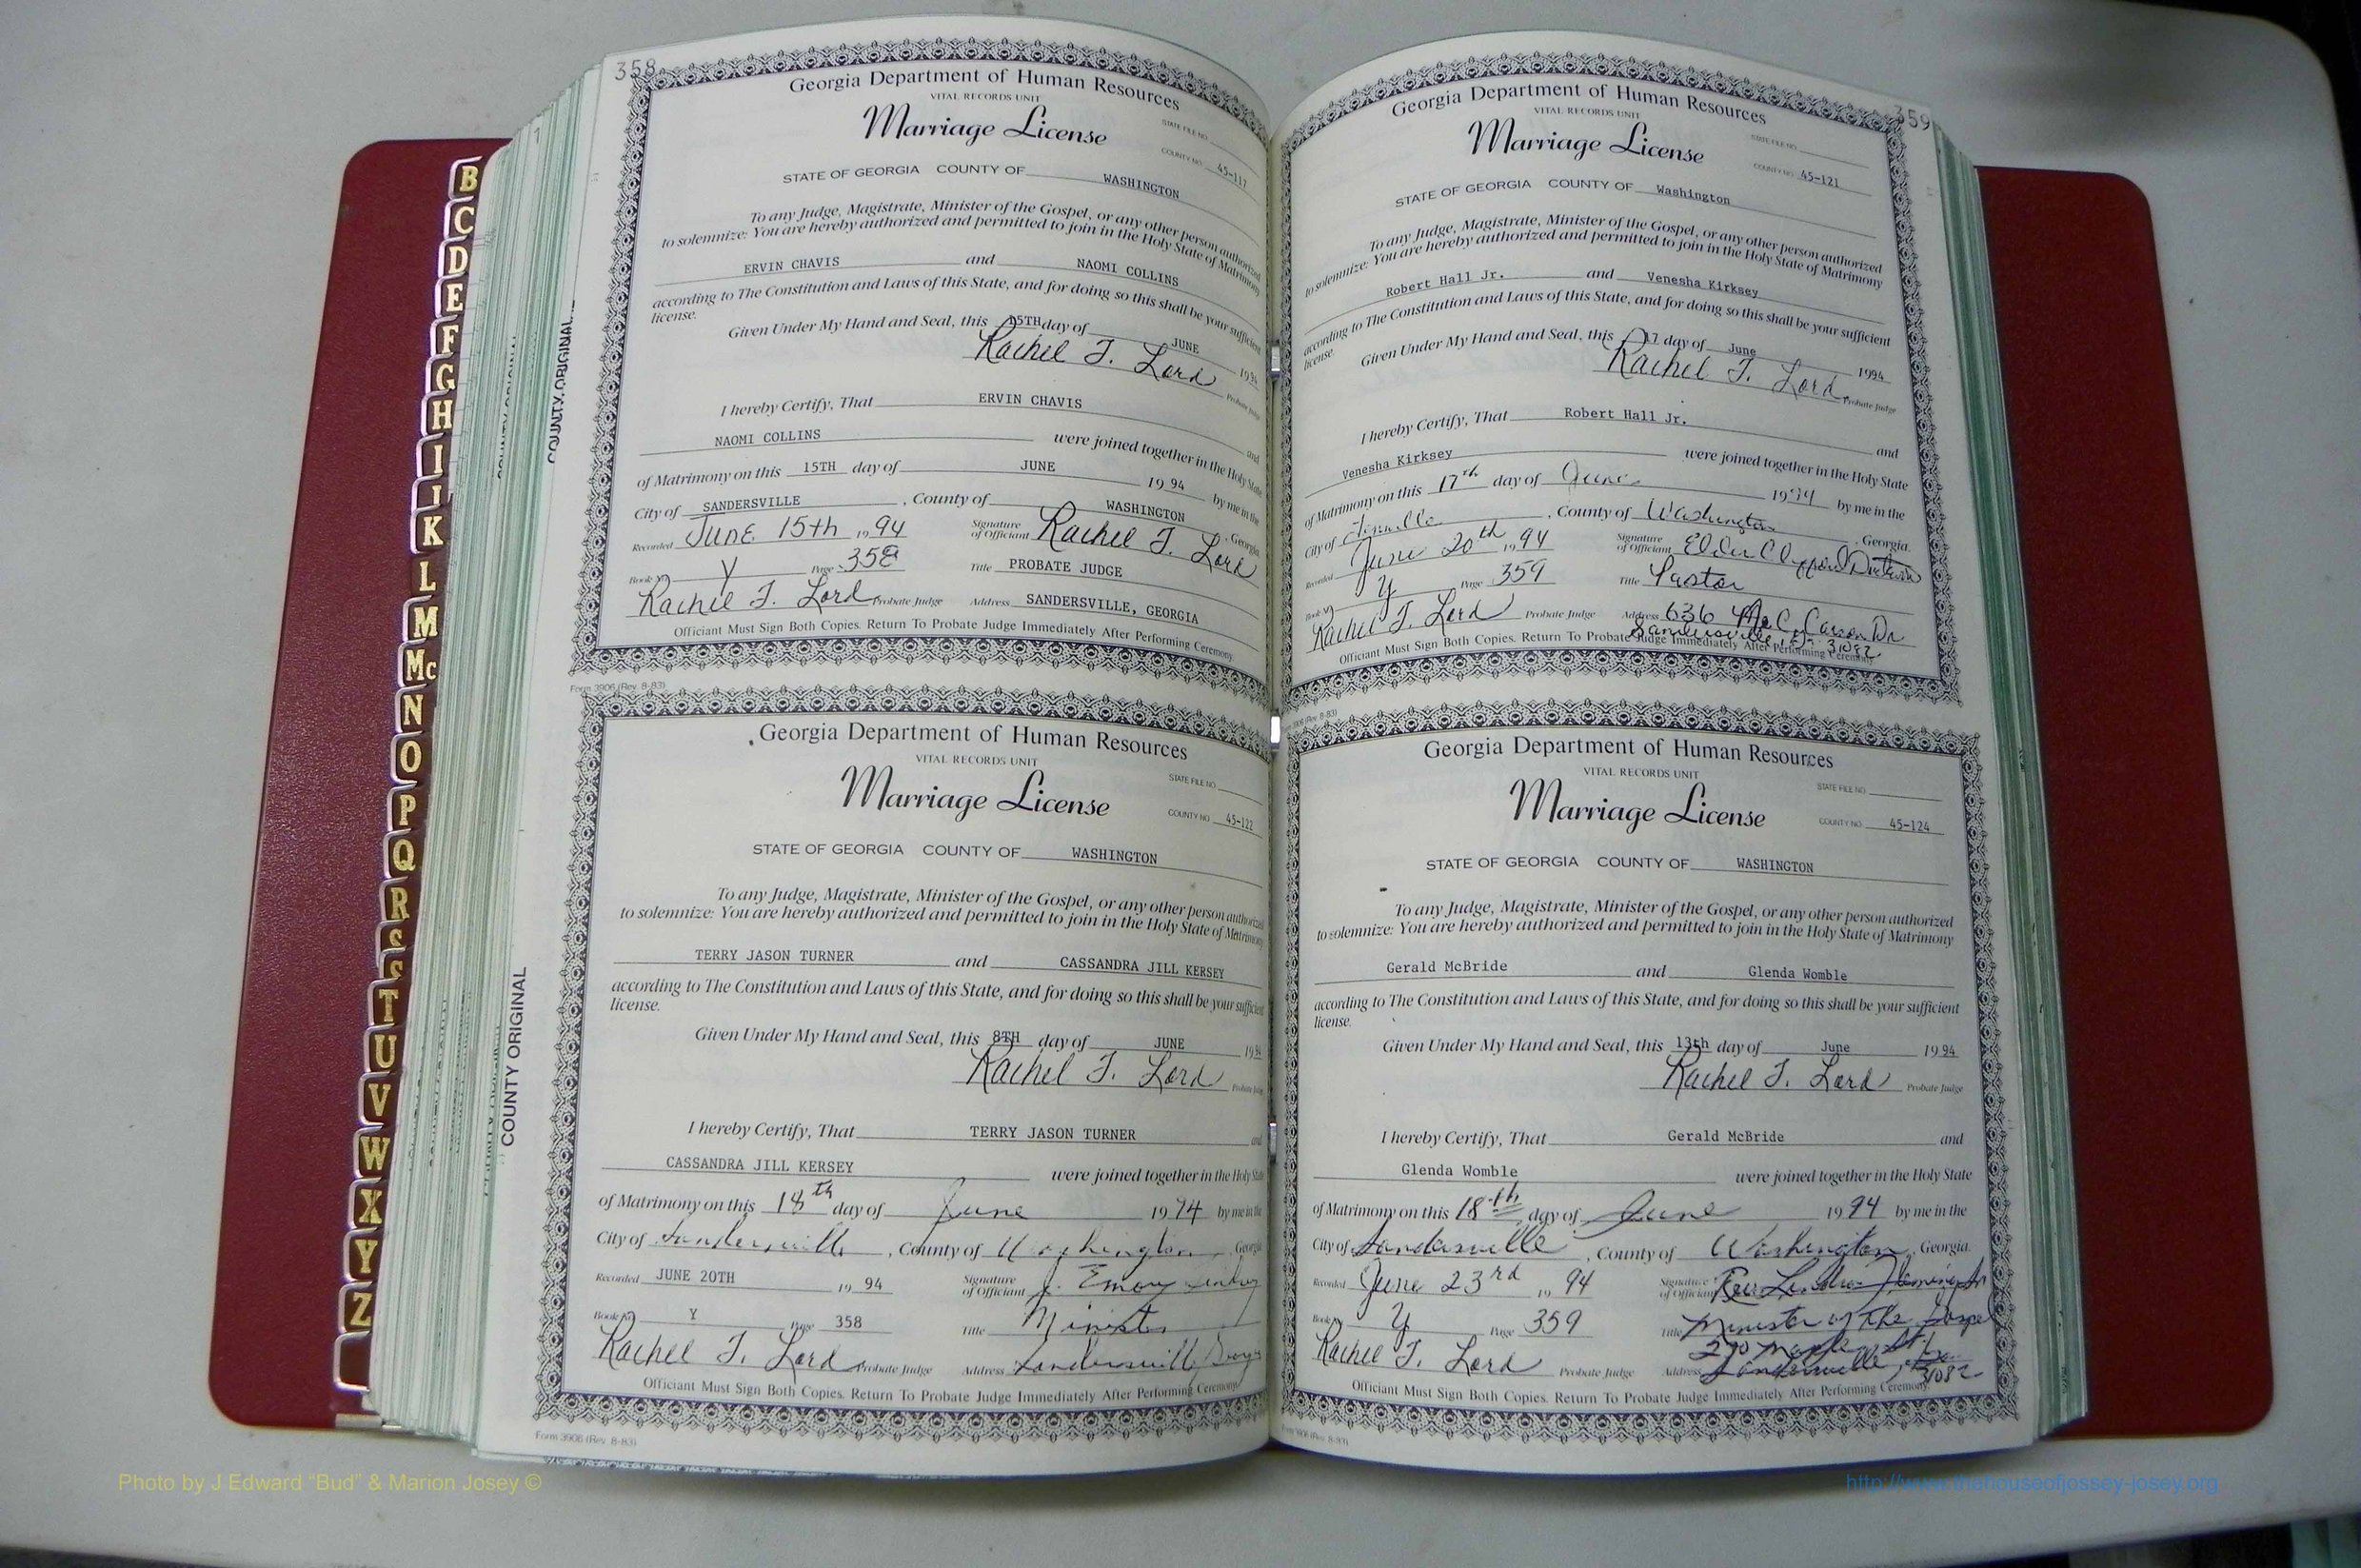 358
Georgia Department of Human Resources
VITAL RECORDS UNIT
Marriage License
STATE FILE NO.
COUNTY NO. 45-117
STATE OF GEORGIA COUNTY OF WASHINGTON
To any Judge, Magistrate, Minister of the Gospel, or any other person authorized
to solemnize: You are hereby authorized and permitted to join in the Holy State of Matrimony
ERVIN CHAVIS and NAOMI COLLINS
according to The Constitution and Laws of this State, and for doing so this shall be your sufficient
license.
Given Under My Hand and Seal, this 15TH day of JUNE 1994
Rachel T. Lord Probate Judge
I hereby Certify, That ERVIN CHAVIS and
NAOMI COLLINS were joined together in the Holy State
of Matrimony on this 15TH day of JUNE 19 94 by me in the
City of SANDERSVILLE , County of WASHINGTON , Georgia.
Recorded June 15th 19 94 Signature of Officiant Rachel T. Lord
Book No. Y Page 358 Title PROBATE JUDGE
Rachel T. Lord Probate Judge Address SANDERSVILLE, GEORGIA
Officiant Must Sign Both Copies. Return To Probate Judge Immediately After Performing Ceremony.
Form 3906 (Rev. 8-83)
COUNTY ORIGINAL
Georgia Department of Human Resources
VITAL RECORDS UNIT
Marriage License
STATE FILE NO.
COUNTY NO. 45-122
STATE OF GEORGIA COUNTY OF WASHINGTON
To any Judge, Magistrate, Minister of the Gospel, or any other person authorized
to solemnize: You are hereby authorized and permitted to join in the Holy State of Matrimony
TERRY JASON TURNER and CASSANDRA JILL KERSEY
according to The Constitution and Laws of this State, and for doing so this shall be your sufficient
license.
Given Under My Hand and Seal, this 8TH day of JUNE 1994
Rachel T. Lord Probate Judge
I hereby Certify, That TERRY JASON TURNER and
CASSANDRA JILL KERSEY were joined together in the Holy State
of Matrimony on this 18th day of June 1994 by me in the
City of Sandersville , County of Washington , Georgia
Recorded JUNE 20TH 19 94 Signature of Officiant J. Emory
Book No. Y Page 358 Title Minister
Rachel T. Lord Probate Judge Address Sandersville, Georgia
Officiant Must Sign Both Copies. Return To Probate Judge Immediately After Performing Ceremony.
Form 3906 (Rev. 8-83)
COUNTY ORIGINAL
359
Georgia Department of Human Resources
VITAL RECORDS UNIT
Marriage License
STATE FILE NO.
COUNTY NO. 45-121
STATE OF GEORGIA COUNTY OF Washington
To any Judge, Magistrate, Minister of the Gospel, or any other person authorized
to solemnize: You are hereby authorized and permitted to join in the Holy State of Matrimony
Robert Hall Jr. and Venesha Kirksey
according to The Constitution and Laws of this State, and for doing so this shall be your sufficient
license.
Given Under My Hand and Seal, this 17 day of June 1994
Rachel T. Lord Probate Judge
I hereby Certify, That Robert Hall Jr. and
Venesha Kirksey were joined together in the Holy State
of Matrimony on this 17th day of June 1994 by me in the
City of Tennille , County of Washington , Georgia.
Recorded June 20th 19 94 Signature of Officiant Elder
Book No. Y Page 359 Title Pastor
Rachel T. Lord Probate Judge Address 636 Dr
Sandersville, Ga. 31082
Officiant Must Sign Both Copies. Return To Probate Judge Immediately After Performing Ceremony
Form 3906 (Rev. 8-83)
Georgia Department of Human Resources
VITAL RECORDS UNIT
Marriage License
STATE FILE NO.
COUNTY NO. 45-124
STATE OF GEORGIA COUNTY OF WASHINGTON
To any Judge, Magistrate, Minister of the Gospel, or any other person authorized
to solemnize: You are hereby authorized and permitted to join in the Holy State of Matrimony
Gerald McBride and Glenda Womble
according to The Constitution and Laws of this State, and for doing so this shall be your sufficient
license.
Given Under My Hand and Seal, this 13th day of June 1994
Rachel T. Lord Probate Judge
I hereby Certify, That Gerald McBride and
Glenda Womble were joined together in the Holy State
of Matrimony on this 18th day of June 1994 by me in the
City of Sandersville , County of Washington , Georgia.
Recorded June 23rd 19 94 Signature of Officiant Rev.
Book No. Y Page 359 Title Minister of the Gospel
270 Maple St
Rachel T. Lord Probate Judge Address Sandersville, Ga. 31082
Officiant Must Sign Both Copies. Return To Probate Judge Immediately After Performing Ceremony.
Form 3906 (Rev. 8-83)
B
C
D
E
F
G
H
I
J
K
L
M
Mc
N
O
P
Q
R
S
S
T
U
V
W
X
Y
Z
Photo by J Edward “Bud” & Marion Josey ©
http://www.thehouseofjossey-josey.org